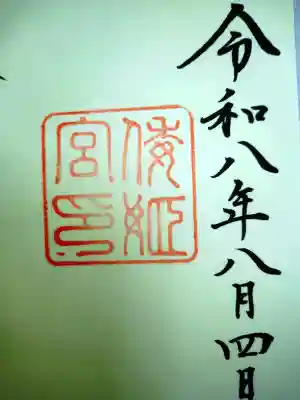 令和八年八月四日
倭姫
宮印